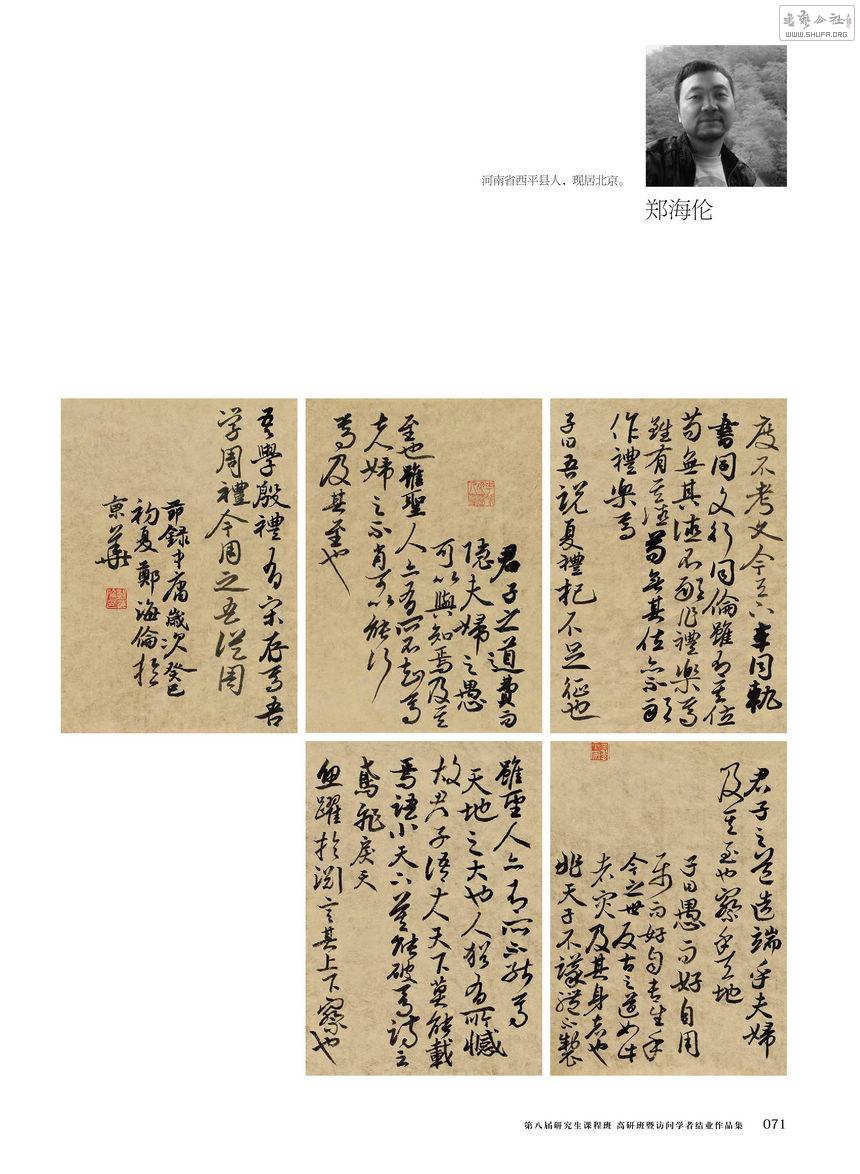 书艺公社
WWW.SHUFA.ORG
河南省西平县人，现居北京。
郑海伦
君子之道費而
隱夫婦之愚
可以與知焉及其
至也雖聖人亦有所不知焉
夫婦之不肖可以能行
焉及其至也
雖聖人亦有所不能焉
天地之大也人猶有所憾
故君子語大天下莫能載
焉語小天下莫能破焉詩云
鳶飛戾天
魚躍於淵言其上下察也
君子之道造端乎夫婦
及其至也察乎天地
子曰愚而好自用
賤而好自專生乎
今之世反古之道如此
者災及其身者也
非天子不議禮不製
度不考文今天下車同軌
書同文行同倫雖有其位
苟無其德不敢作禮樂焉
雖有其德苟無其位亦不敢
作禮樂焉
子曰吾說夏禮杞不足征也
吾學殷禮有宋存焉吾
学周禮今用之吾從周
節錄中庸歲次癸巳
初夏鄭海倫於
京華
第八届研究生课程班 高研班暨访问学者结业作品集 071